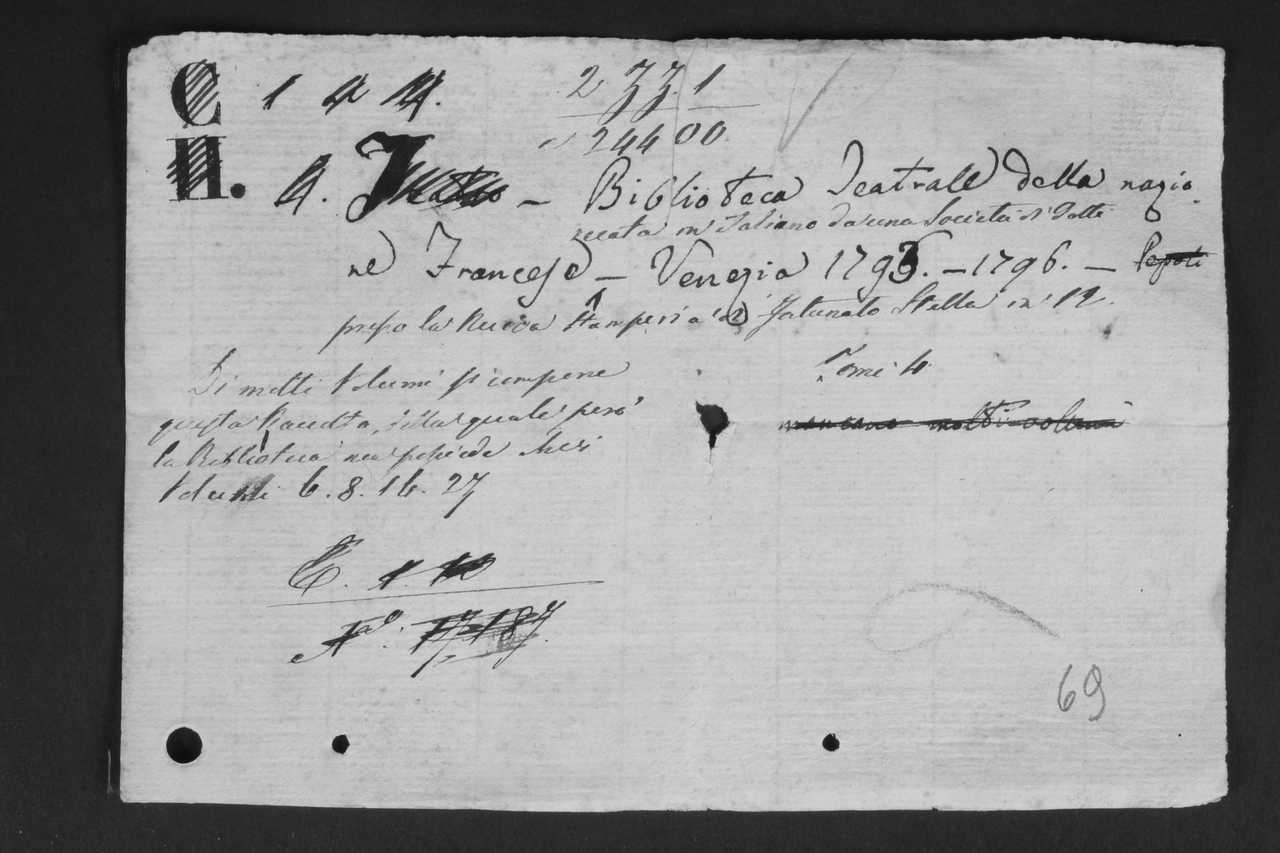 C 1 4
2 77. 1
24400
H. A. Teatro - Biblioteca Teatrale della nazio
recata in Italiano da una Società di Dotti
ne Francese - Venezia 1793. - 1796. - Pepoli
presso la Nuova Stamperia di Fortunato Stella in 12.
Tomi 4
Di molti Volumi si compone
questa Raccolta, della quale però
la Biblioteca non possiede che i
Volumi 6. 8. 16. 27
mancano molti volumi
N.º 17187
69